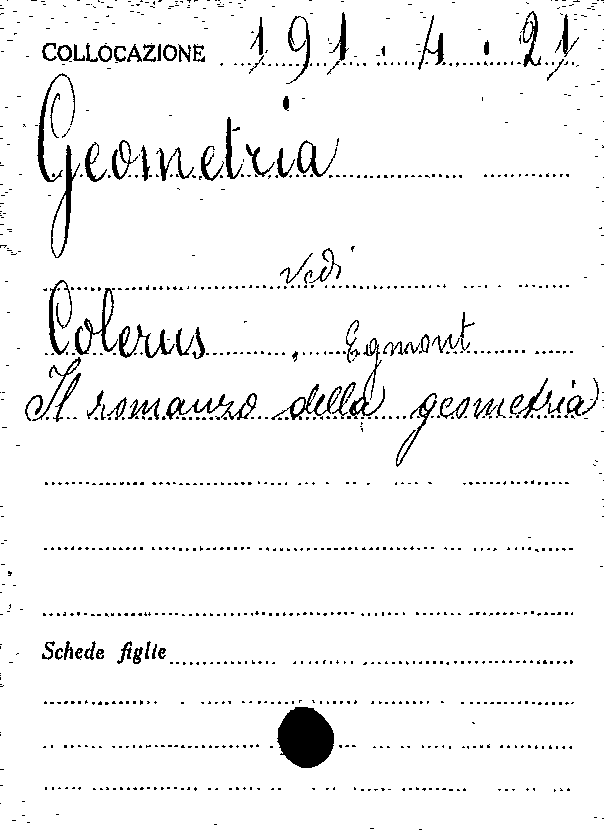 COLLOCAZIONE 191.4.21
Geometria
Vedi
Colerus, Egmont
Il romanzo della geometria
Schede figlie